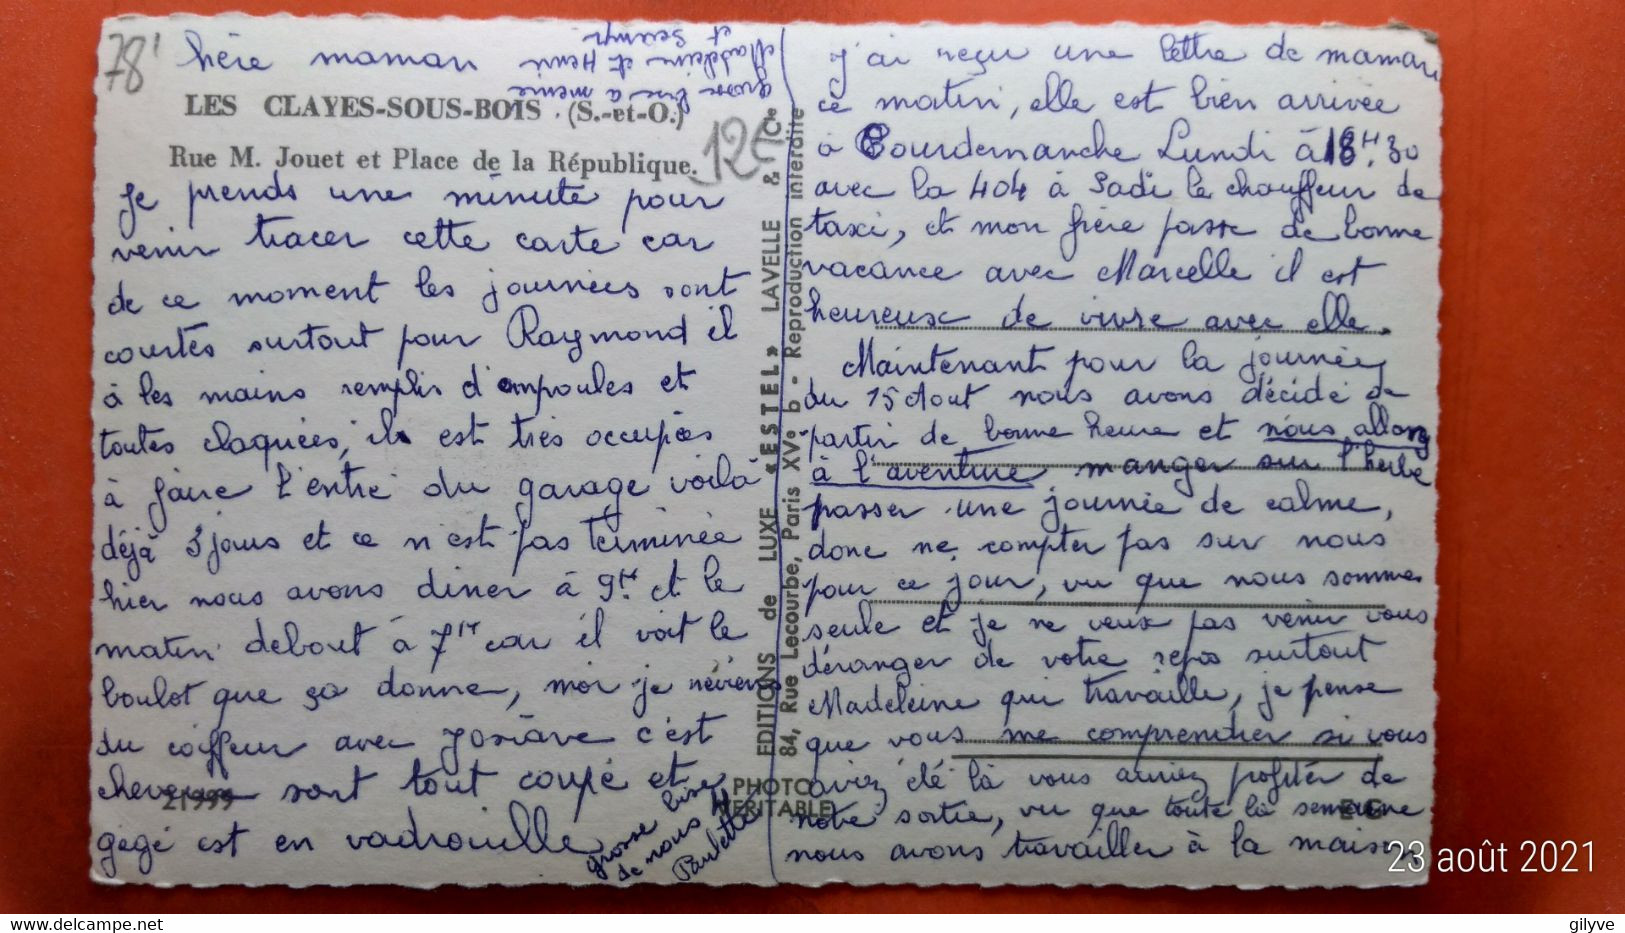 78'
hère maman
LES CLAYES-SOUS-BOIS (S.-et-O.)
Rue M. Jouet et Place de la République.
12€
Je prends une minute pour
venir tracer cette carte car
de ce moment les journées sont
courtes surtout pour Raymond il
à les mains remplis d'ampoules et
toutes claquées, ils est très occupées
à faire l'entré du garage voilà
déjà 3 jours et ce n'est pas terminée
hier nous avons diner à 9H. et le
matin debout à 7H car il voit le
boulot que ça donne, moi je
du coiffeur avec Josiane c'est
cheveux sont tout coupé et
gégé est en vadrouille
grosse bise
de nous 4
Paulette
grosse bise a mémé
Madeleine et Henri
et
21999
PHOTO
VERITABLE
EDITIONS de LUXE « ESTEL » LAVELLE & Cie
84, Rue Lecourbe, Paris XVe b - Reproduction interdite
j'ai reçu une lettre de maman
ce matin, elle est bien arrivée
à Courdemanche Lundi à 18H.30
avec la 404 à Sadi le chauffeur de
taxi, et mon frère passe de bonne
vacance avec Marcelle il est
heureux de vivre avec elle.
Maintenant pour la journée
du 15 Aout nous avons décidé de
partir de bonne heure et nous allons
à l'aventure manger sur l'herbe
passer une journée de calme,
donc ne compter pas sur nous
pour ce jour, vu que nous somme
seule et je ne veux pas venir vous
déranger de votre repos surtout
Madeleine qui travaille, je pense
que vous me comprendrer si vous
aviez été là vous auriez profiter de
notre sortie, vu que toute la semaine
nous avons travailler à la maison
23 août 2021
gilyve